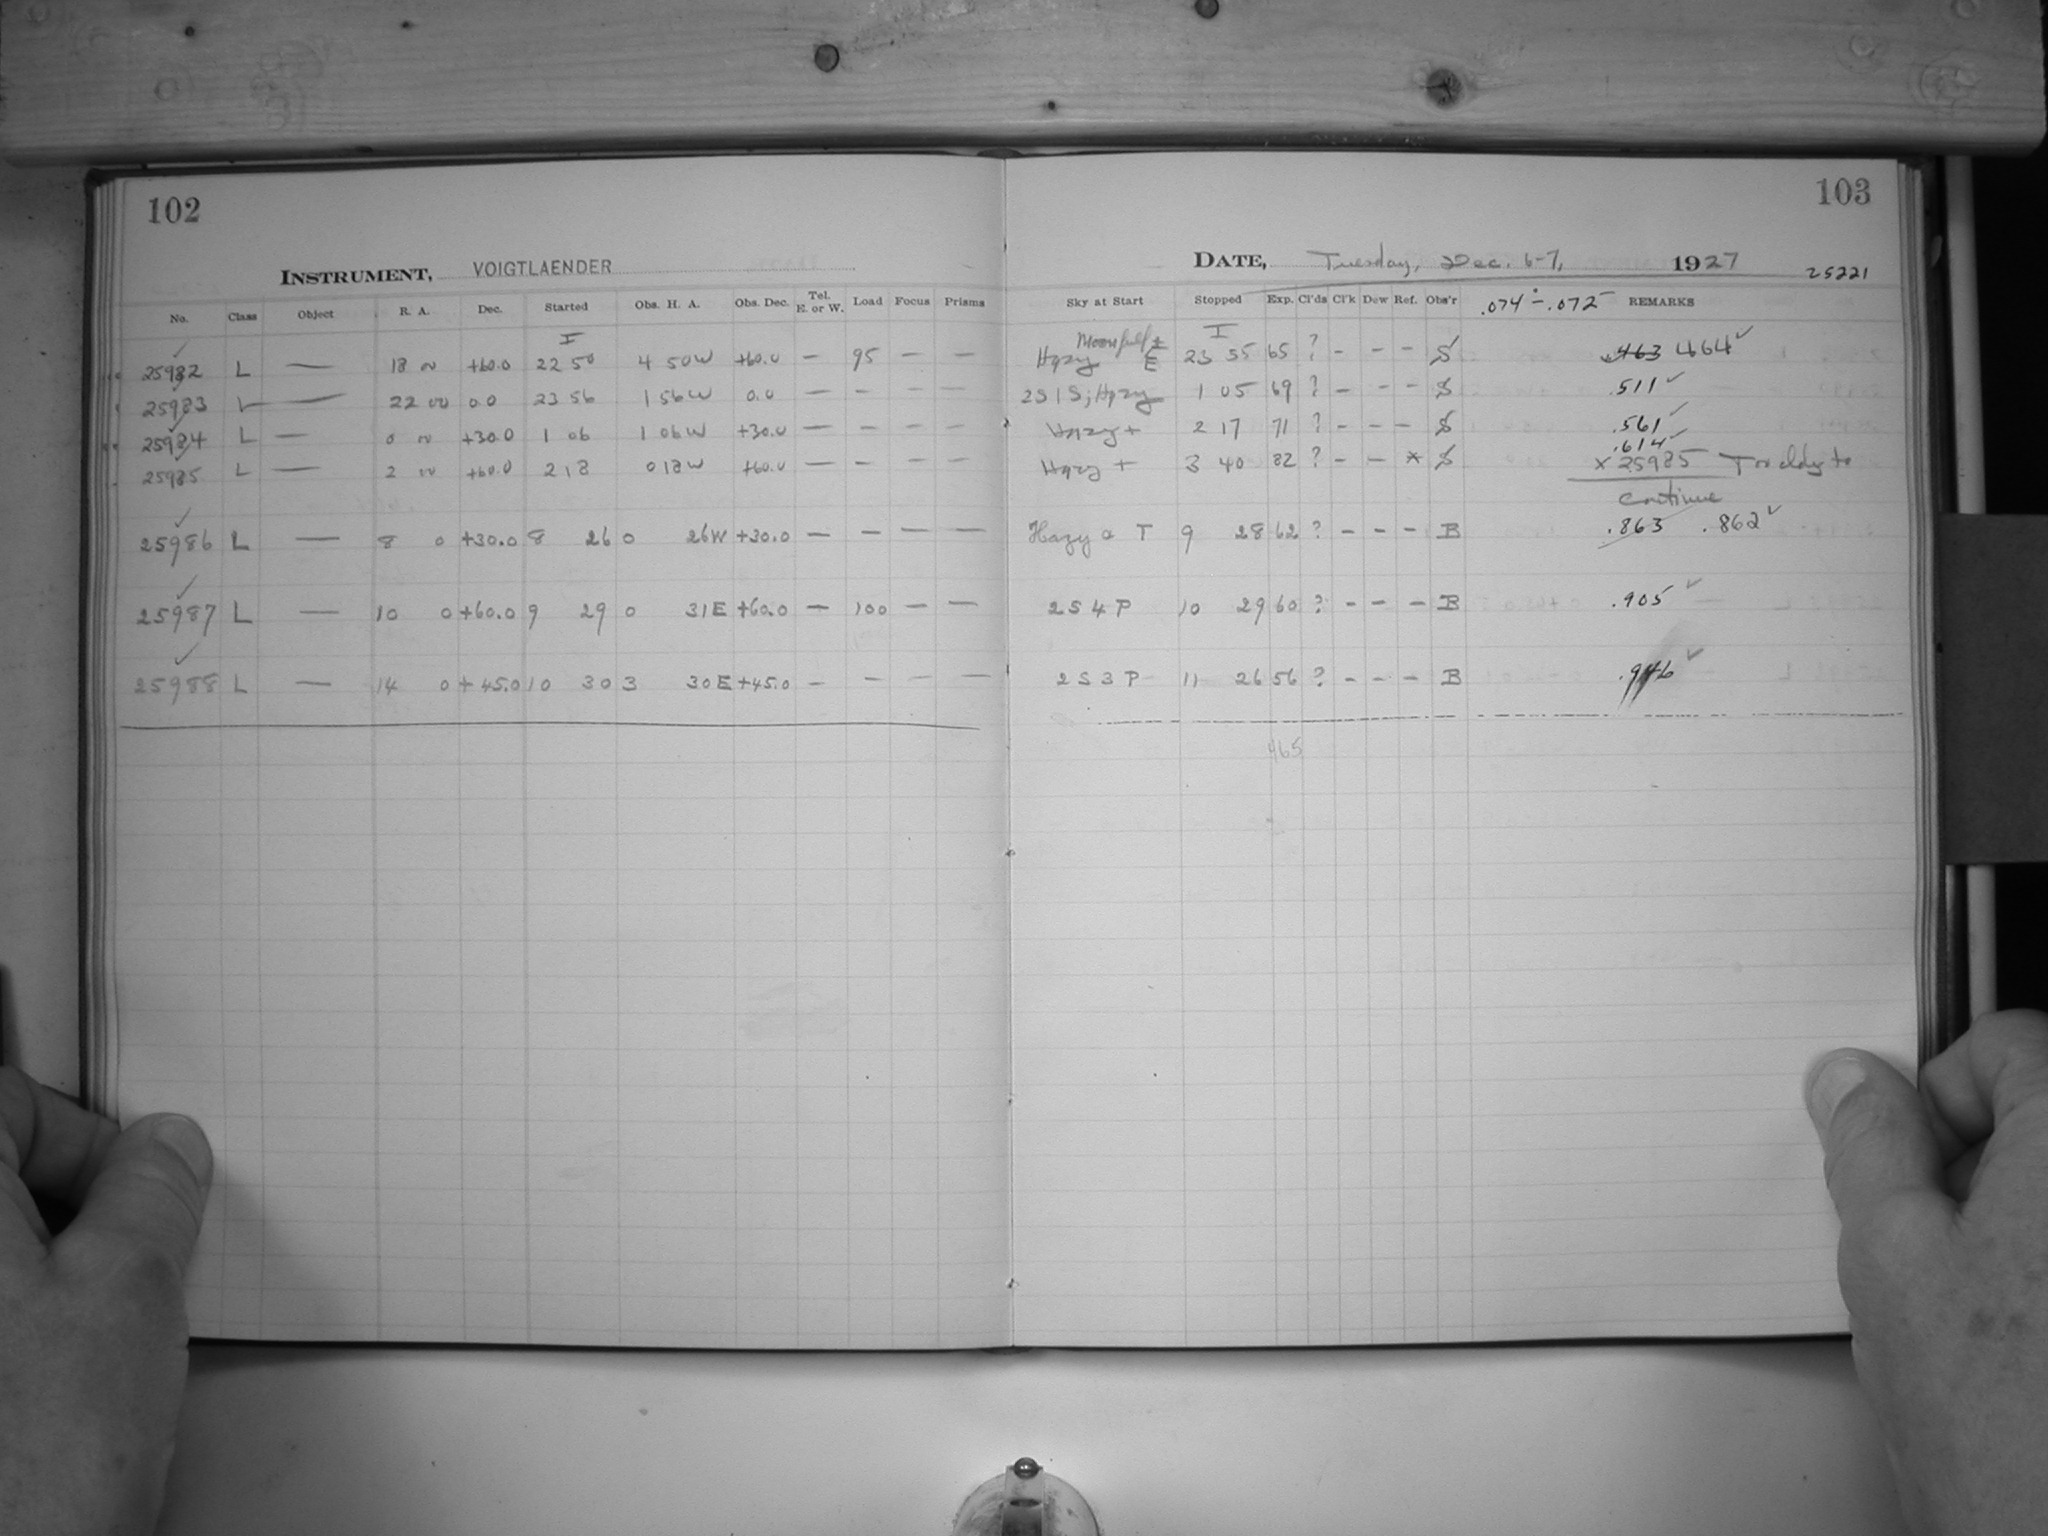 102
INSTRUMENT, VOIGTLAENDER
No. Class Object R. A. Dec. Started Obs. H. A. Obs. Dec. Tel. E. or W. Load Focus Prisms
I
25982 L — 18 00 +60.0 22 50 4 50W +60.0 — 95 — —
25983 L — 22 00 0.0 23 56 1 56W 0.0 — — — —
25984 L — 0 00 +30.0 1 06 1 06W +30.0 — — — —
25985 L — 2 00 +60.0 2 18 0 18W +60.0 — — — —
25986 L — 8 0 +30.0 8 26 0 26W +30.0 — — — —
25987 L — 10 0 +60.0 9 29 0 31E +60.0 — 100 — —
25988 L — 14 0 +45.0 10 30 3 30E +45.0 — — — —
103
DATE, Tuesday, Dec. 6-7, 1927
25221
Sky at Start Stopped Exp. Cl'ds Cl'k Dew Ref. Obs'r .074 - .072 REMARKS
Moon full ± I
Hazy E 23 55 65 ? - - - S .463 464 ✓
2S1S; Hazy 1 05 69 ? - - - S .511 ✓
Hazy + 2 17 71 ? - - - S .561 ✓
.614 ✓
Hazy + 3 40 82 ? - - * S x 25985 Too cldy to
continue
Hazy a T 9 28 62 ? - - - B .863 .862 ✓
2S4P 10 29 60 ? - - - B .905 ✓
2S3P 11 26 56 ? - - - B .946 ✓
465